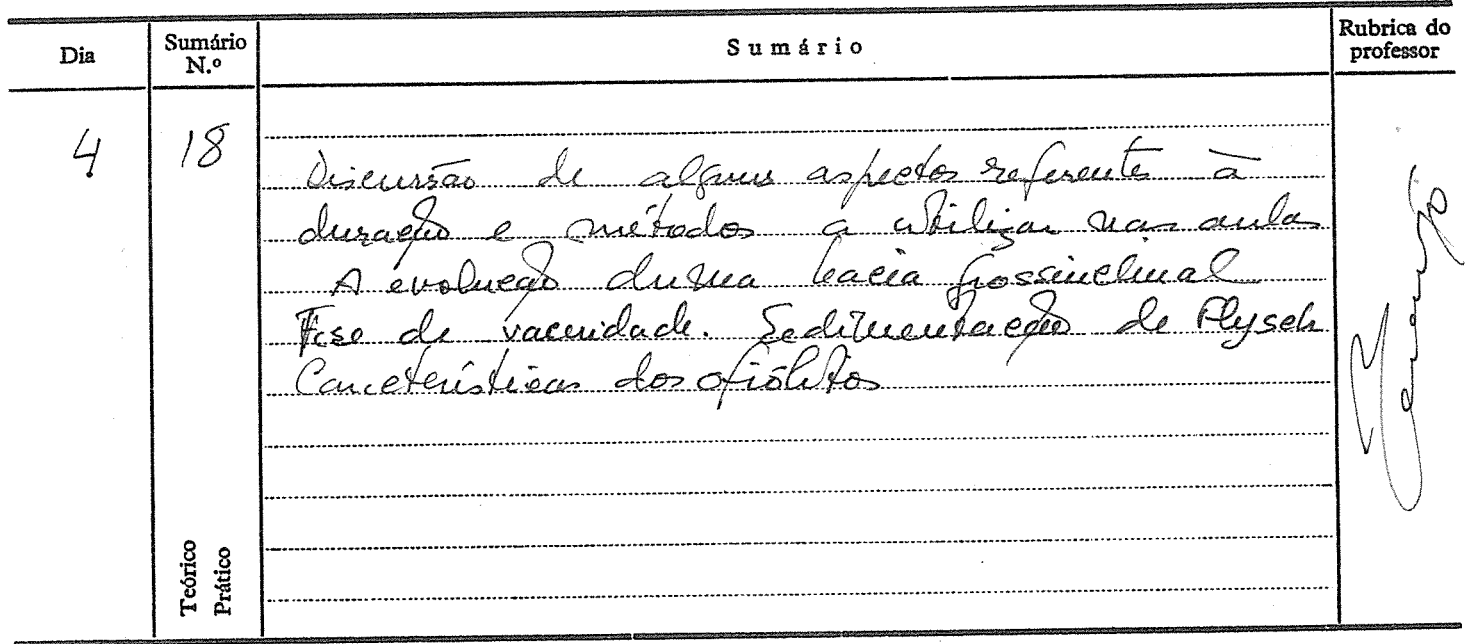 Dia
Sumário N.º
Sumário
Rubrica do professor
4
18
Discussão de alguns aspectos referentes à
duração e métodos a utilizar nas aulas
A evolução duma bacia geossinclinal
Fase de vacuidade. Sedimentação de Flysch
Características dos ofiólitos
Teórico
Prático